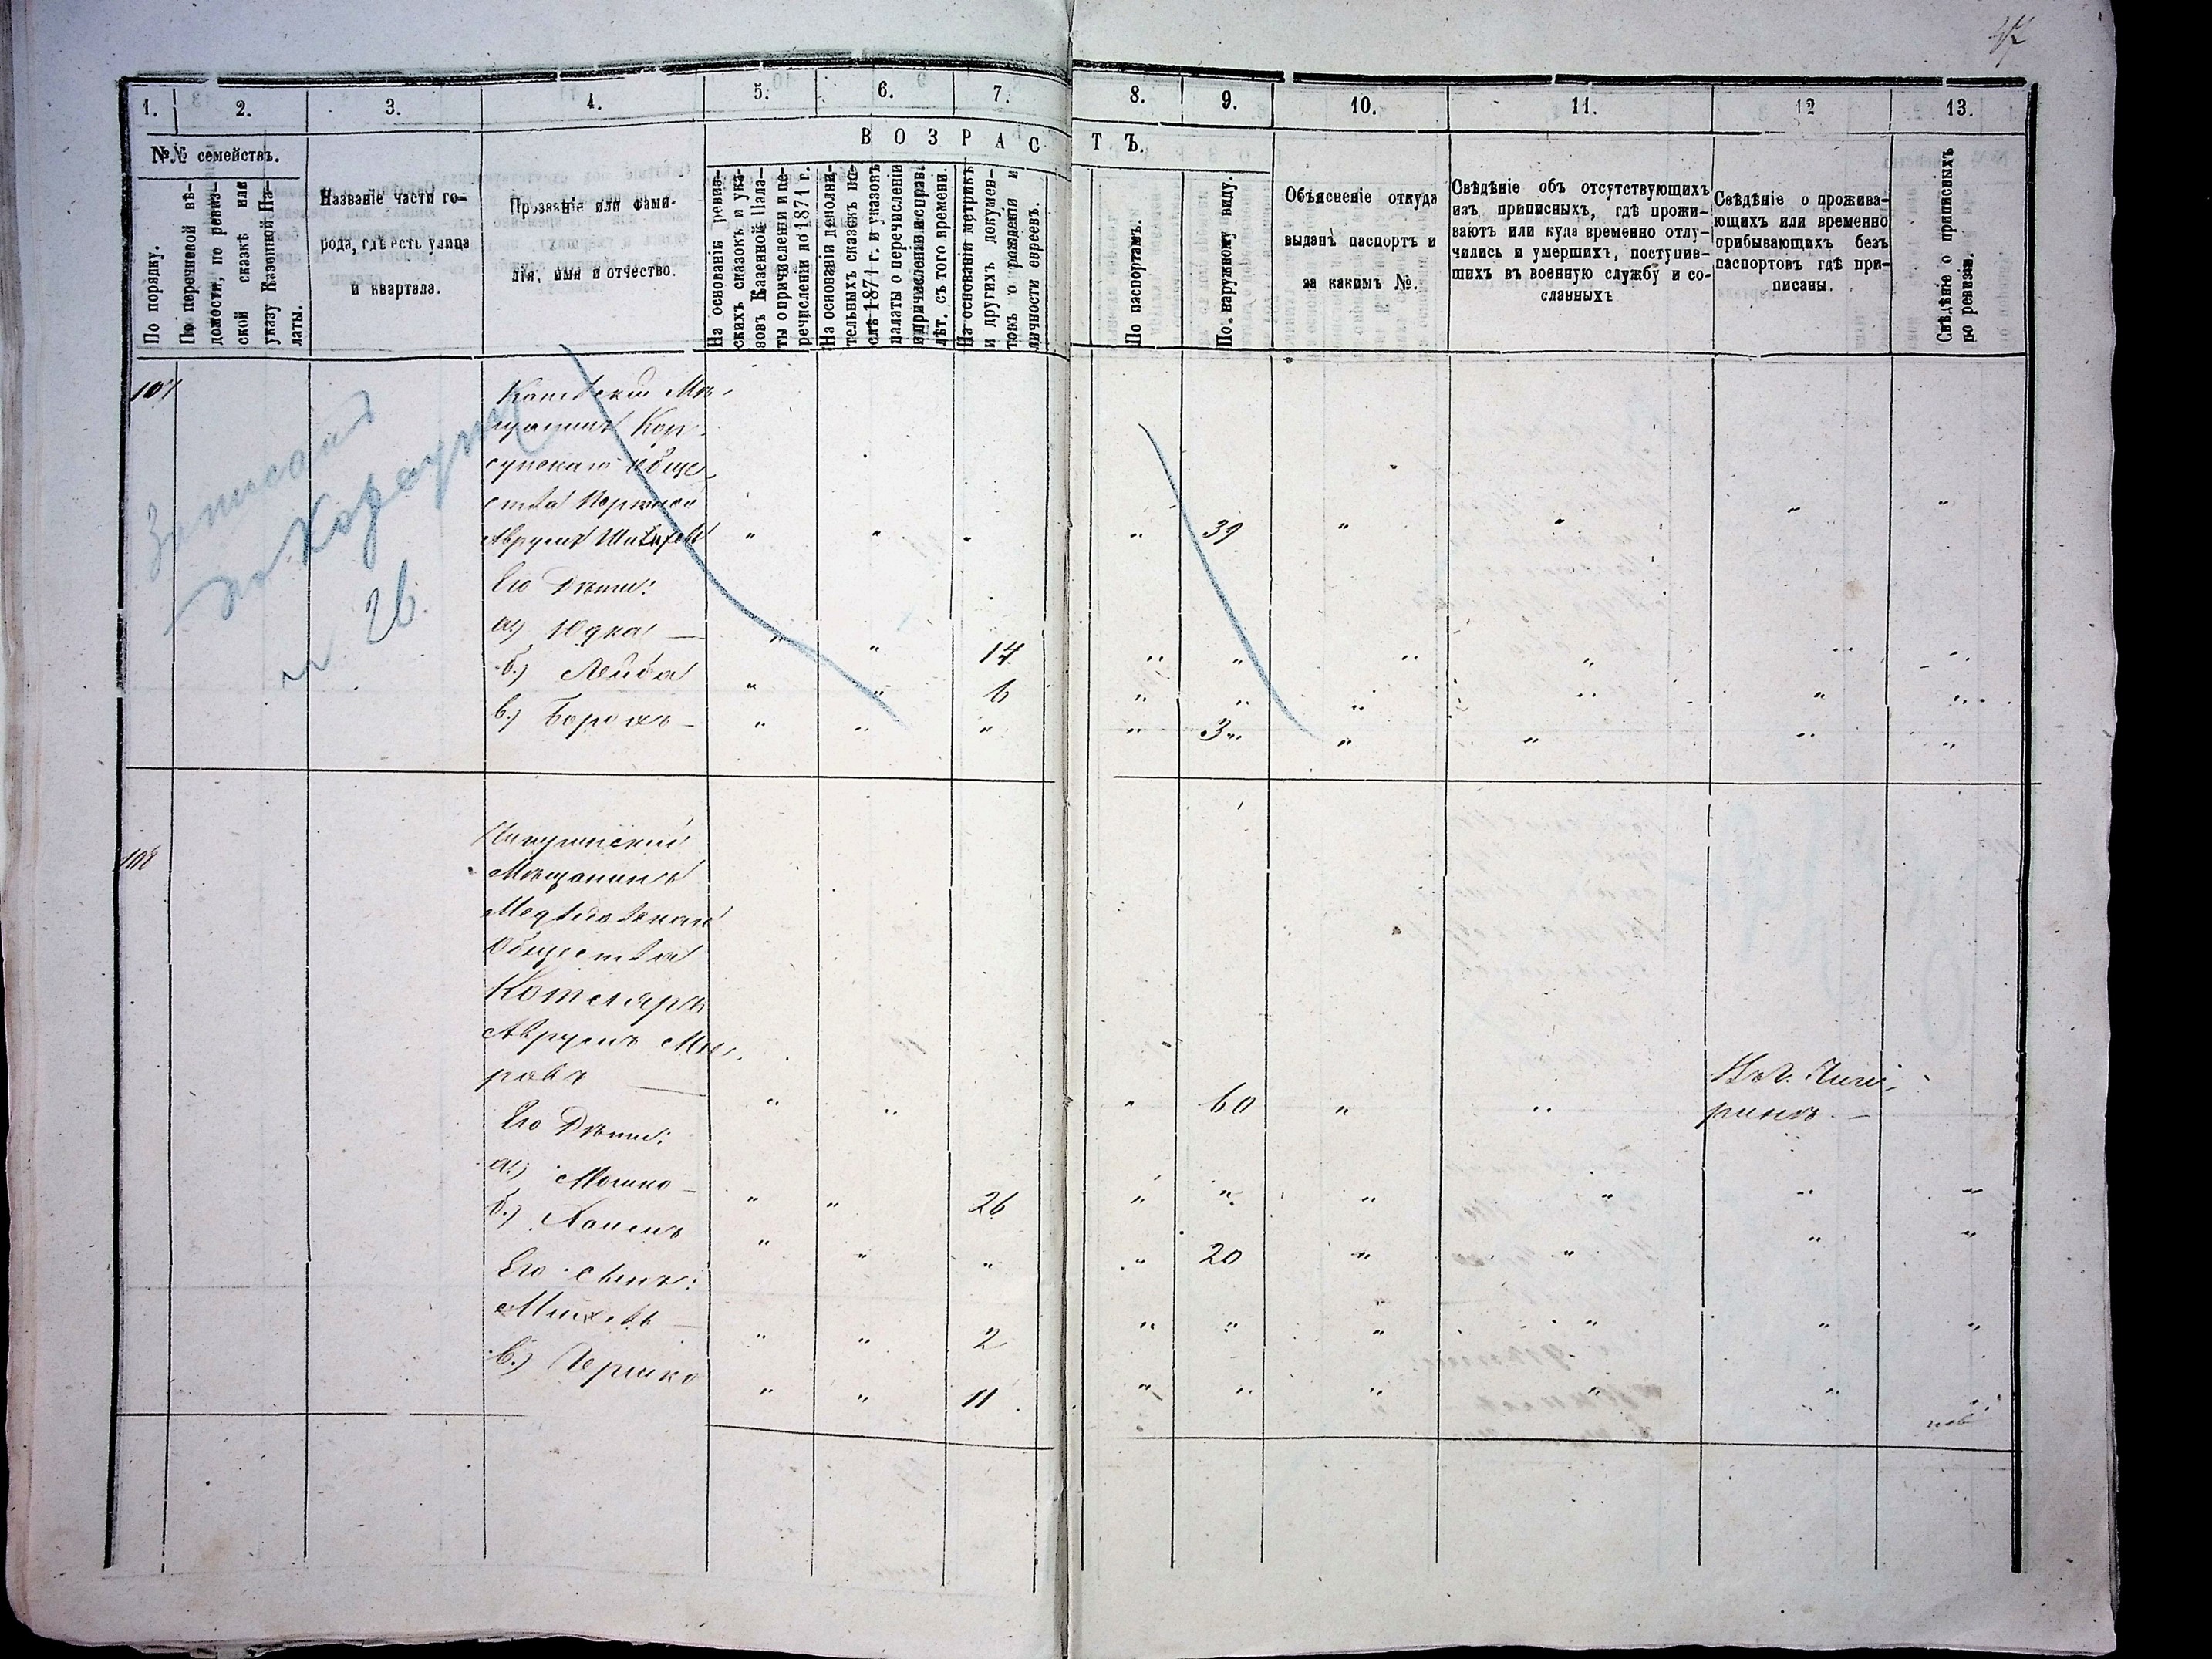 1. 2. 3. 4. 5. 6. 7. 8. 9. 10. 11. 12 13.
№№ семействъ.
По порядку.
По перечневой вѣ-
домости, по ревиз-
ской сказкѣ или
указу Казенной Па-
латы.
Названіе части го-
рода, гдѣ есть улица
и квартала.
Прозваніе или фами-
лія, имя и отчество.
ВОЗРАСТЪ.
На основаніи ревиз-
скихъ сказокъ и ука-
зовъ Казенной Пала-
ты о причисленіи и пе-
речисленіи до 1871 г.
На основаніи дополни-
тельныхъ сказокъ по-
слѣ 1871 г. и указовъ
палаты о перечисленіи
и причисленіи и справ.
лѣт. съ того времени.
На основаніи метрикъ
и другихъ докумен-
товъ о рожденіи и
личности евреевъ.
По паспортамъ.
По наружному виду.
Объясненіе откуда
выданъ паспортъ и
за какимъ №.
Свѣдѣніе объ отсутствующихъ
изъ приписныхъ, гдѣ прожи-
ваютъ или куда временно отлу-
чились и умершихъ, поступив-
шихъ въ военную службу и со-
сланныхъ
Свѣдѣніе о прожива-
ющихъ или временно
прибывающихъ безъ
паспортовъ гдѣ при-
писаны.
Свѣдѣніе о приписныхъ
по ревизіи.
107
Каневскій Мѣ-
щанинъ Кор-
сунскаго Обще-
ства
Аврумъ 39
Его Дѣти:
а.) Юдка — 14
б.) Лейба 6
в.) Борохъ — 3
по Корсуну
н. 26.
108
Мѣщанинъ
Общества
Котляръ
Аврумъ Мее-
ровъ — 60 Въ г. Чиги-
ринѣ. —
Его Дѣти:
а.) Мошко — 26
б.) Хаимъ 20
Его сынъ:
2
в.) Гершко 11